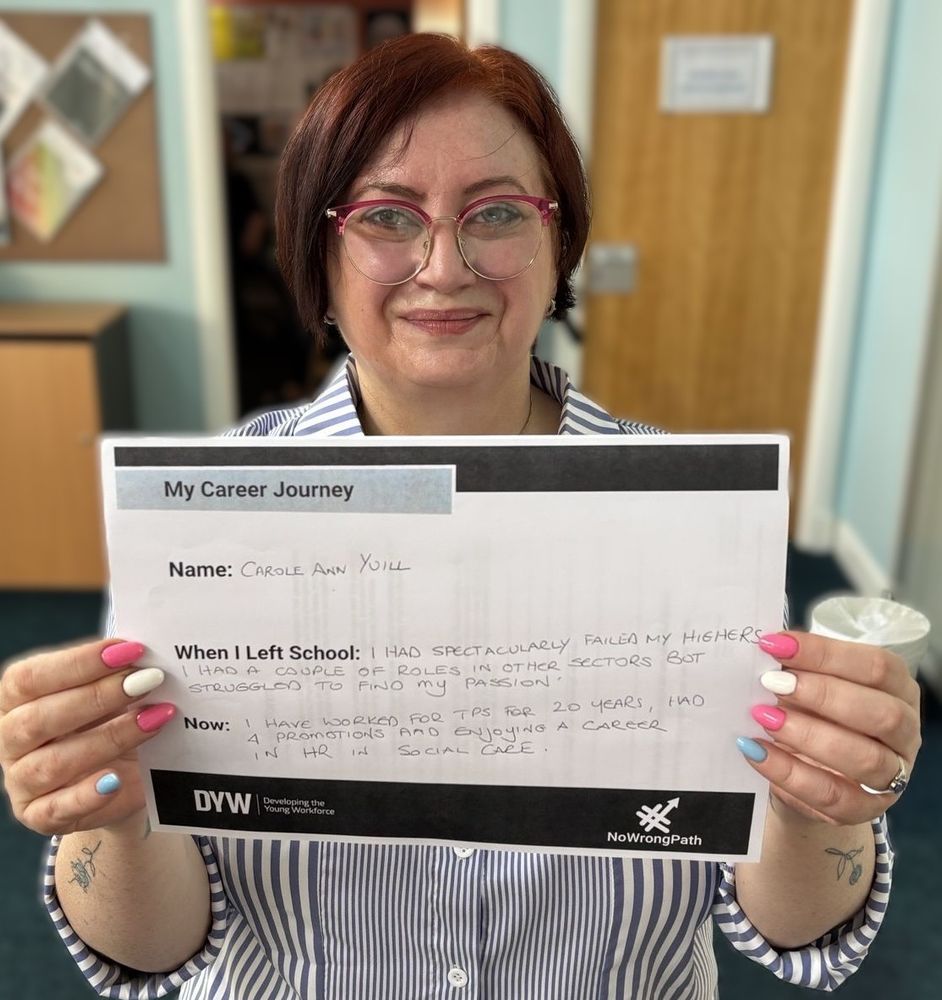 My Career Journey
Name: CAROLE ANN YUILL
When I Left School: I HAD SPECTACULARLY FAILED MY HIGHERS
I HAD A COUPLE OF ROLES IN OTHER SECTORS BUT
STRUGGLED TO FIND MY PASSION.
Now: I HAVE WORKED FOR TPS FOR 20 YEARS, HAD
4 PROMOTIONS AND ENJOYING A CAREER
IN HR IN SOCIAL CARE.
DYW Developing the
Young Workforce
NoWrongPath